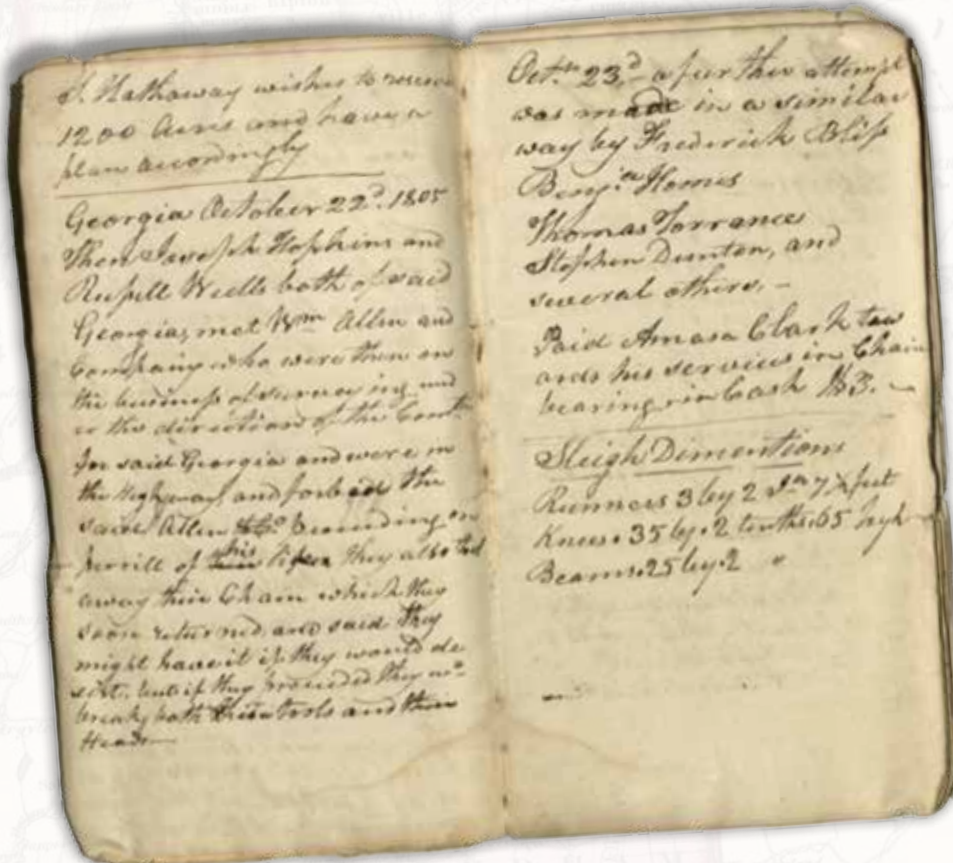 S. Hathaway wishes to reserve
1200 Acres and have a
plan accordingly
Georgia October 22d. 1805
Then Joseph Hopkins and
Russell Wells both of said
Georgia, met Wm Allen and
Company who were then on
the business of surveying und
er the direction of the Court
for said Georgia and were in
the highway, and forbade the
said Allen & Co. proceeding on
perrill of his life they also took
away their Chain which they
soon returned, and said they
might have it if they would de
sist, but if they proceeded they wd
break both their tools and their
Heads
Oct. 23d. a further attempt
was made in a similar
way by Frederick Bliss
Benja Homes
Thomas Torrance
Stephen Dunton, and
several others. -
Paid Amasa Clark tow
ards his services in Chain
bearing in Cash $3. -
Sleigh Dimentions
Runners 3 by 2 7½ feet
Knees .35 by .2 tenths .65 high
Beams .25 by .2 "